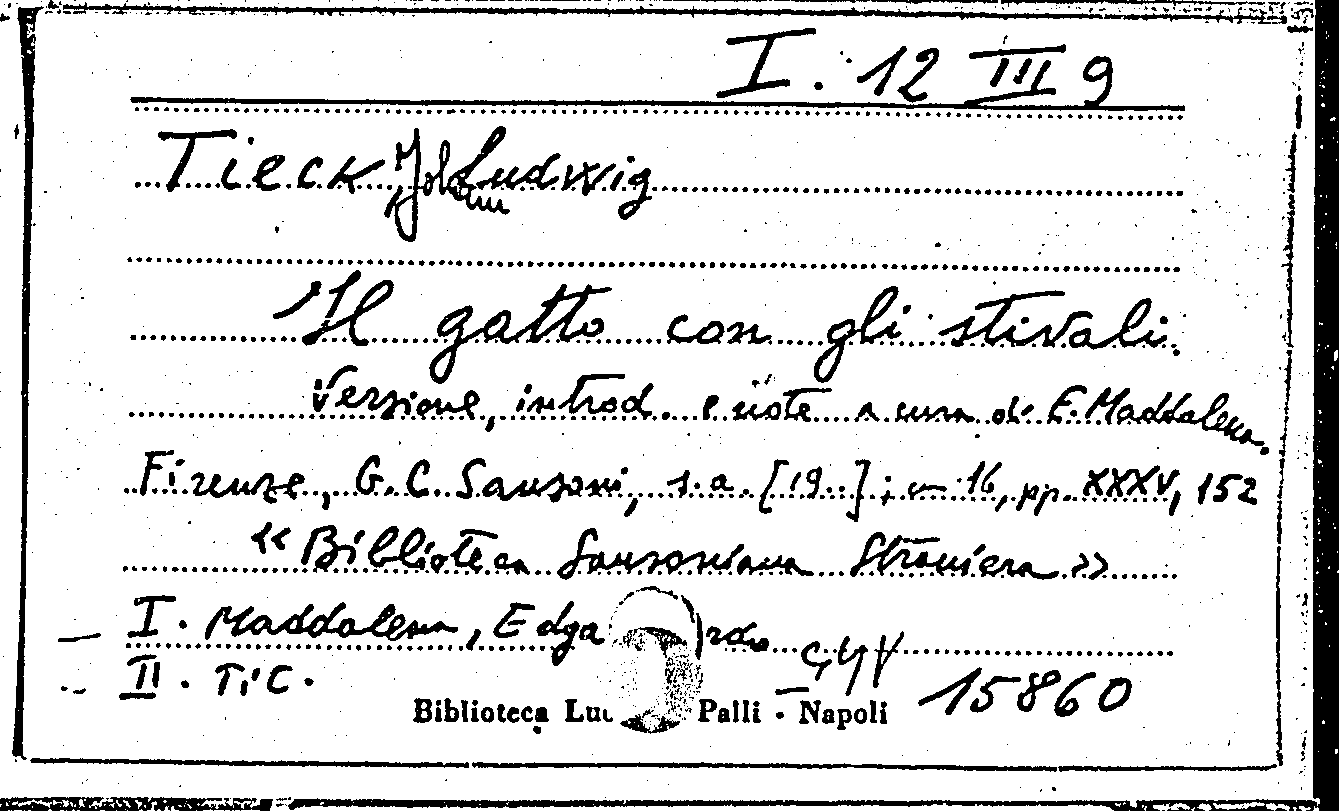 I. 12 III 9
Tieck, Johann Ludwig
Il gatto con gli stivali.
Versione, introd. e note a cura di E. Maddalena.
Firenze, G. C. Sansoni, s.a. [19..]; in 16, pp. XXXV, 152
« Biblioteca Sansoniana Straniera »
I. Maddalena, Edga rdo
II. Tic.
15860
Biblioteca Luc Palli - Napoli